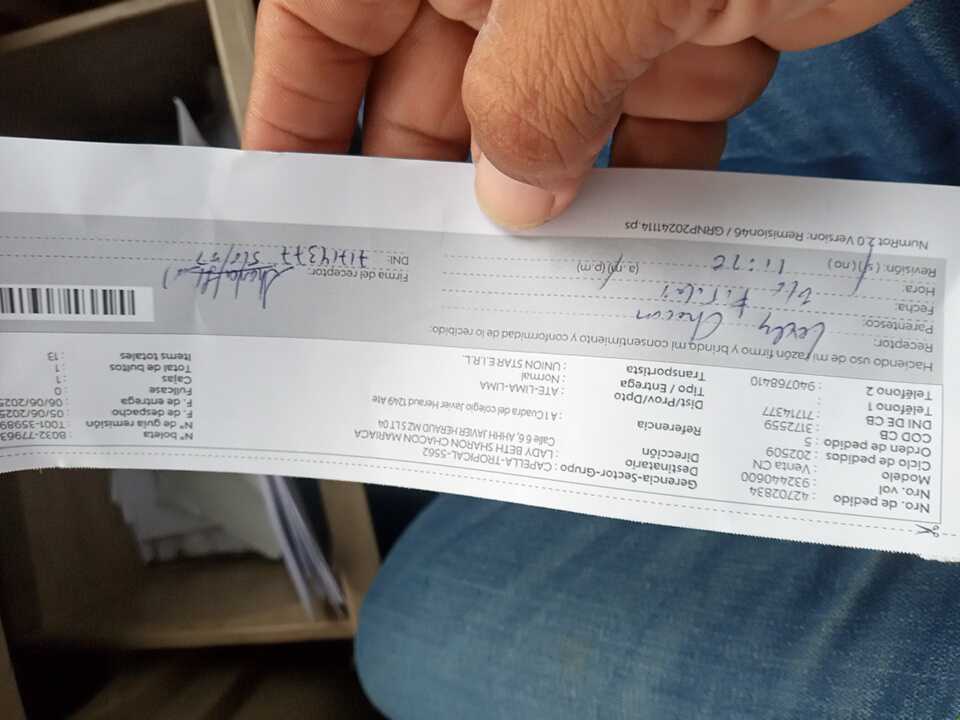 Nro. de pedido : 42702834
Nro. vol : 932440600
Modelo : Venta CN
Ciclo de pedidos : 202509
Orden de pedido : 5
COD CB : 3172559
DNI DE CB : 71714377
Teléfono 1 :
Teléfono 2 : 940768410
Gerencia-Sector-Grupo : CAPELLA-TROPICAL-5562
Destinatario : LADY BETH SHARON CHACON MARIACA
Dirección : Calle 66, AHHH JAVIER HERAUD MZ S LT 04
Referencia : A 1 Cuadra del colegio Javier Heraud 1249 Ate
Dist/Prov/Dpto : ATE-LIMA-LIMA
Tipo / Entrega : Normal
Transportista : UNION STAR E.I.R.L.
N° boleta : B032-77963
N° guía de remisión : T001-35989
F. de despacho : 05/06/2025
F. de entrega : 06/06/2025
Fullcase : 0
Cajas : 1
Total de bultos : 1
Items totales : 13
Haciendo uso de mi razón firmo y brindo mi consentimiento y conformidad de lo recibido:
Receptor: Chacon
Parentesco:
Fecha:
Hora: (a.m) (p.m)
Revisión: (si) (no)
Firma del receptor:
DNI: 71714377
NumRot 2.0 Version: Remision46 / GRNP20241114.ps